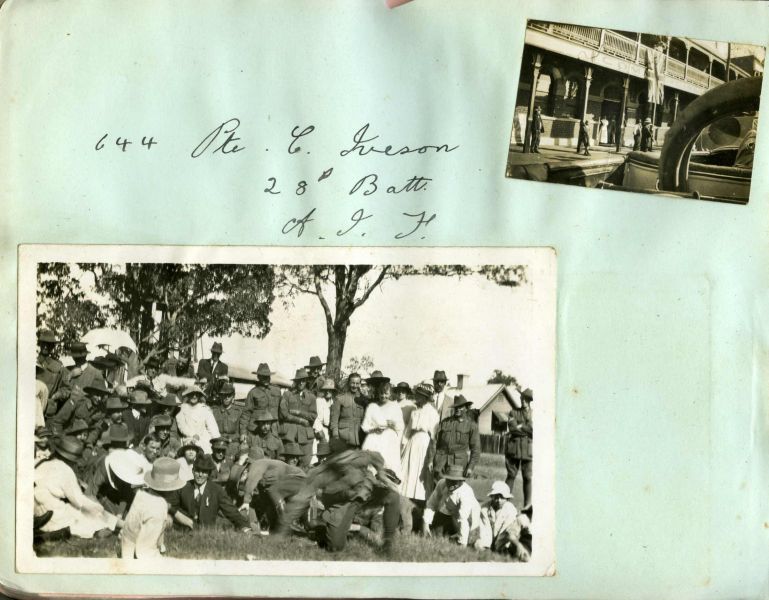 644 Pte. C. Iveson
28th Batt.
A. I. F.